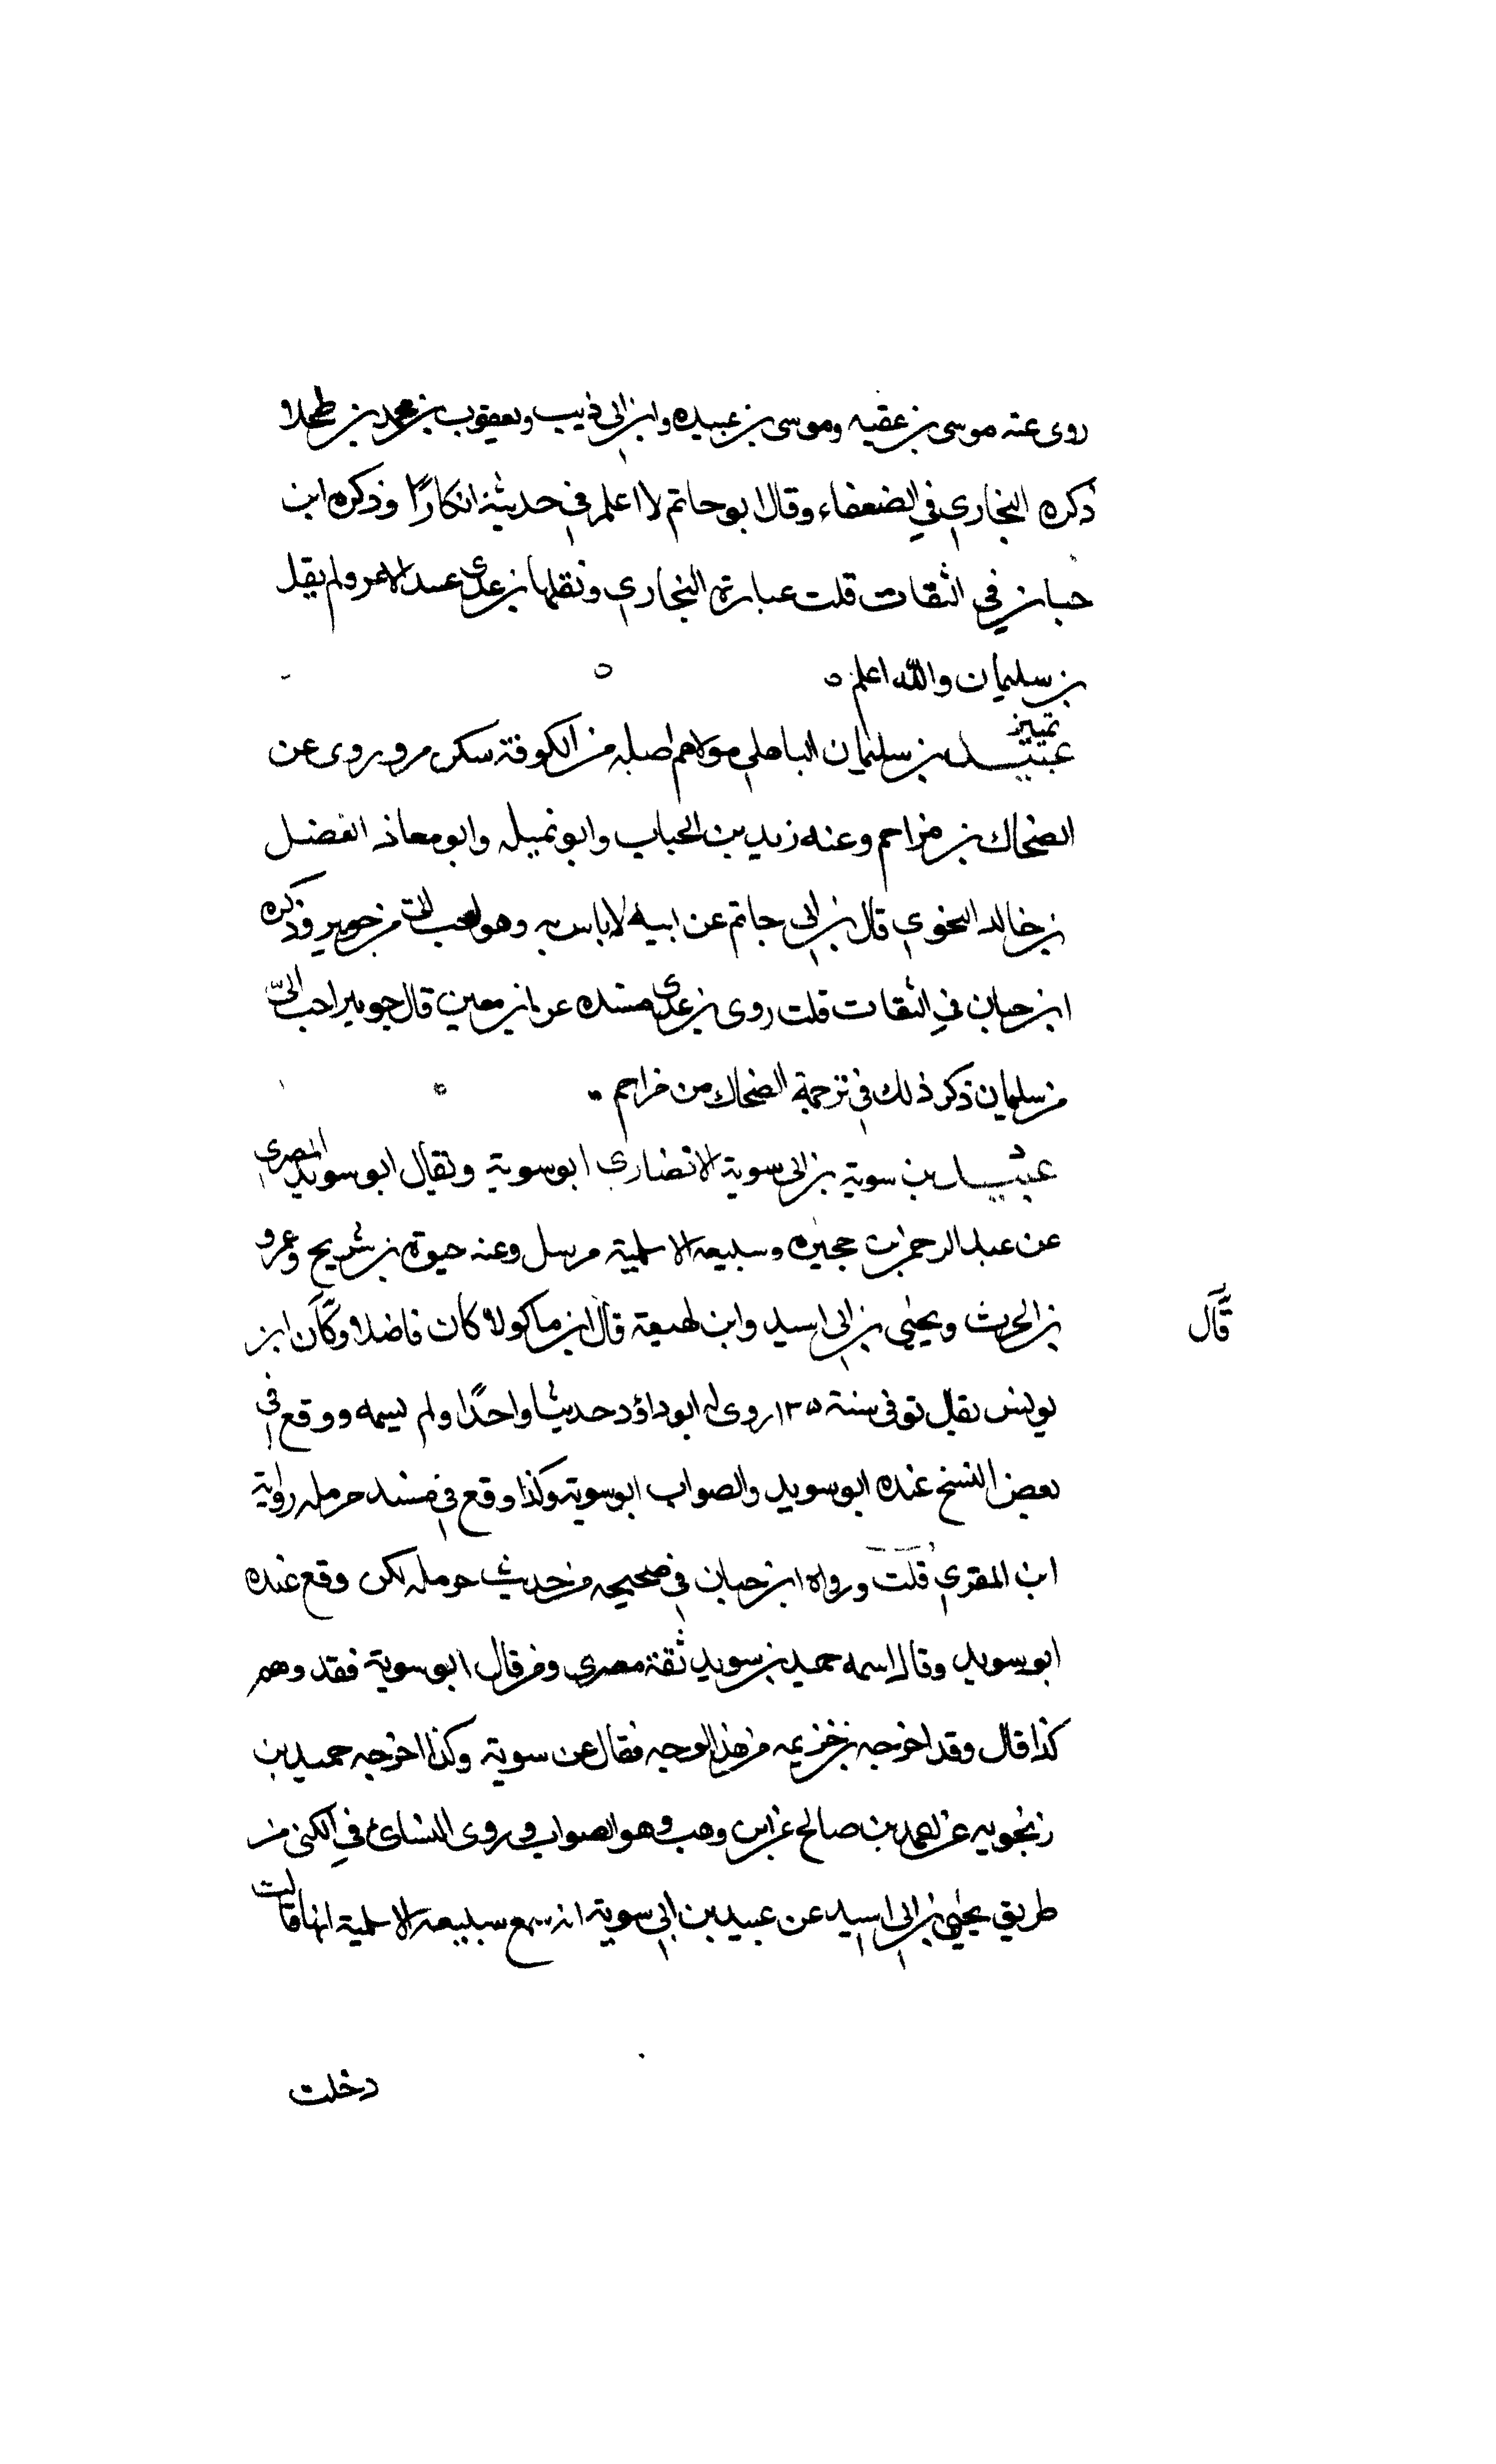 روى عنه موسى بن عقبه وموسى بن عبيده وابن ابى ذيب ويعقوب بن محمد بن طحلا
ذكره البخاري في الضعفاء وقال ابو حاتم لا اعلم في حديثه انكارًا وذكره ابن
حبان في الثقات قلت عبارة البخاري ونقلها بن عدى عبيد الاغر ولم يقل
بن سليمان والله اعلم
تمييز
عبيد بن سليمان الباهلي مولاهم اصله من الكوفة سكن مرو روى عن
الضحاك بن مزاحم وعنه زيد بن الحباب وابو نميله وابو معاذ الفضل
بن خالد النحوي قال بن ابي حاتم عن ابيه لا باس به وهو احب الى من جويبر وذكره
ابن حبان في الثقات قلت روى بن عدى بسنده عن ابن معين قال جويبر احب اليّ
من سليمان ذكر ذلك في ترجمة الضحاك من مزاحم
عبيد بن سوية بن ابى سوية الانصاري ابو سوية ويقال ابو سويد المصرى
عن عبد الرحمن بن حجيره وسبيعه الاسلمية مرسل وعنه حيوة بن شريح وعمرو
بن الحرث ويحيى بن ابى اسيد وابن لهيعة قال ابن ماكولا كان فاضلا وكان ابن
قال
يونس يقل توفى سنة ١٣٥ روى له ابو داؤد حديثا واحدًا ولم يسمه ووقع في
بعض النسخ عنده ابو سويد والصواب ابو سوية وكذا وقع في مسند حرمله رواية
ابن المقري قلت ورواه ابن حبان في صحيحه من حديث حرمله لكن وقع عنده
ابو سويد وقال اسمه حميد بن سويد ثقة مصري ومن قال ابو سوية فقد وهم
كذا قال وقد اخرجه بن خزيمه من هذا الوجه فقال عن سوية وكذا اخرجه حميد بن
زنجويه عن احمد بن صالح عن ابن وهب وهو الصواب وروى النسائ في الكنى من
طريق يحيى بن ابى اسيد عن عبيد بن ابى سوية انه سمع سبيعه الاسلمية انها قالت
دخلت